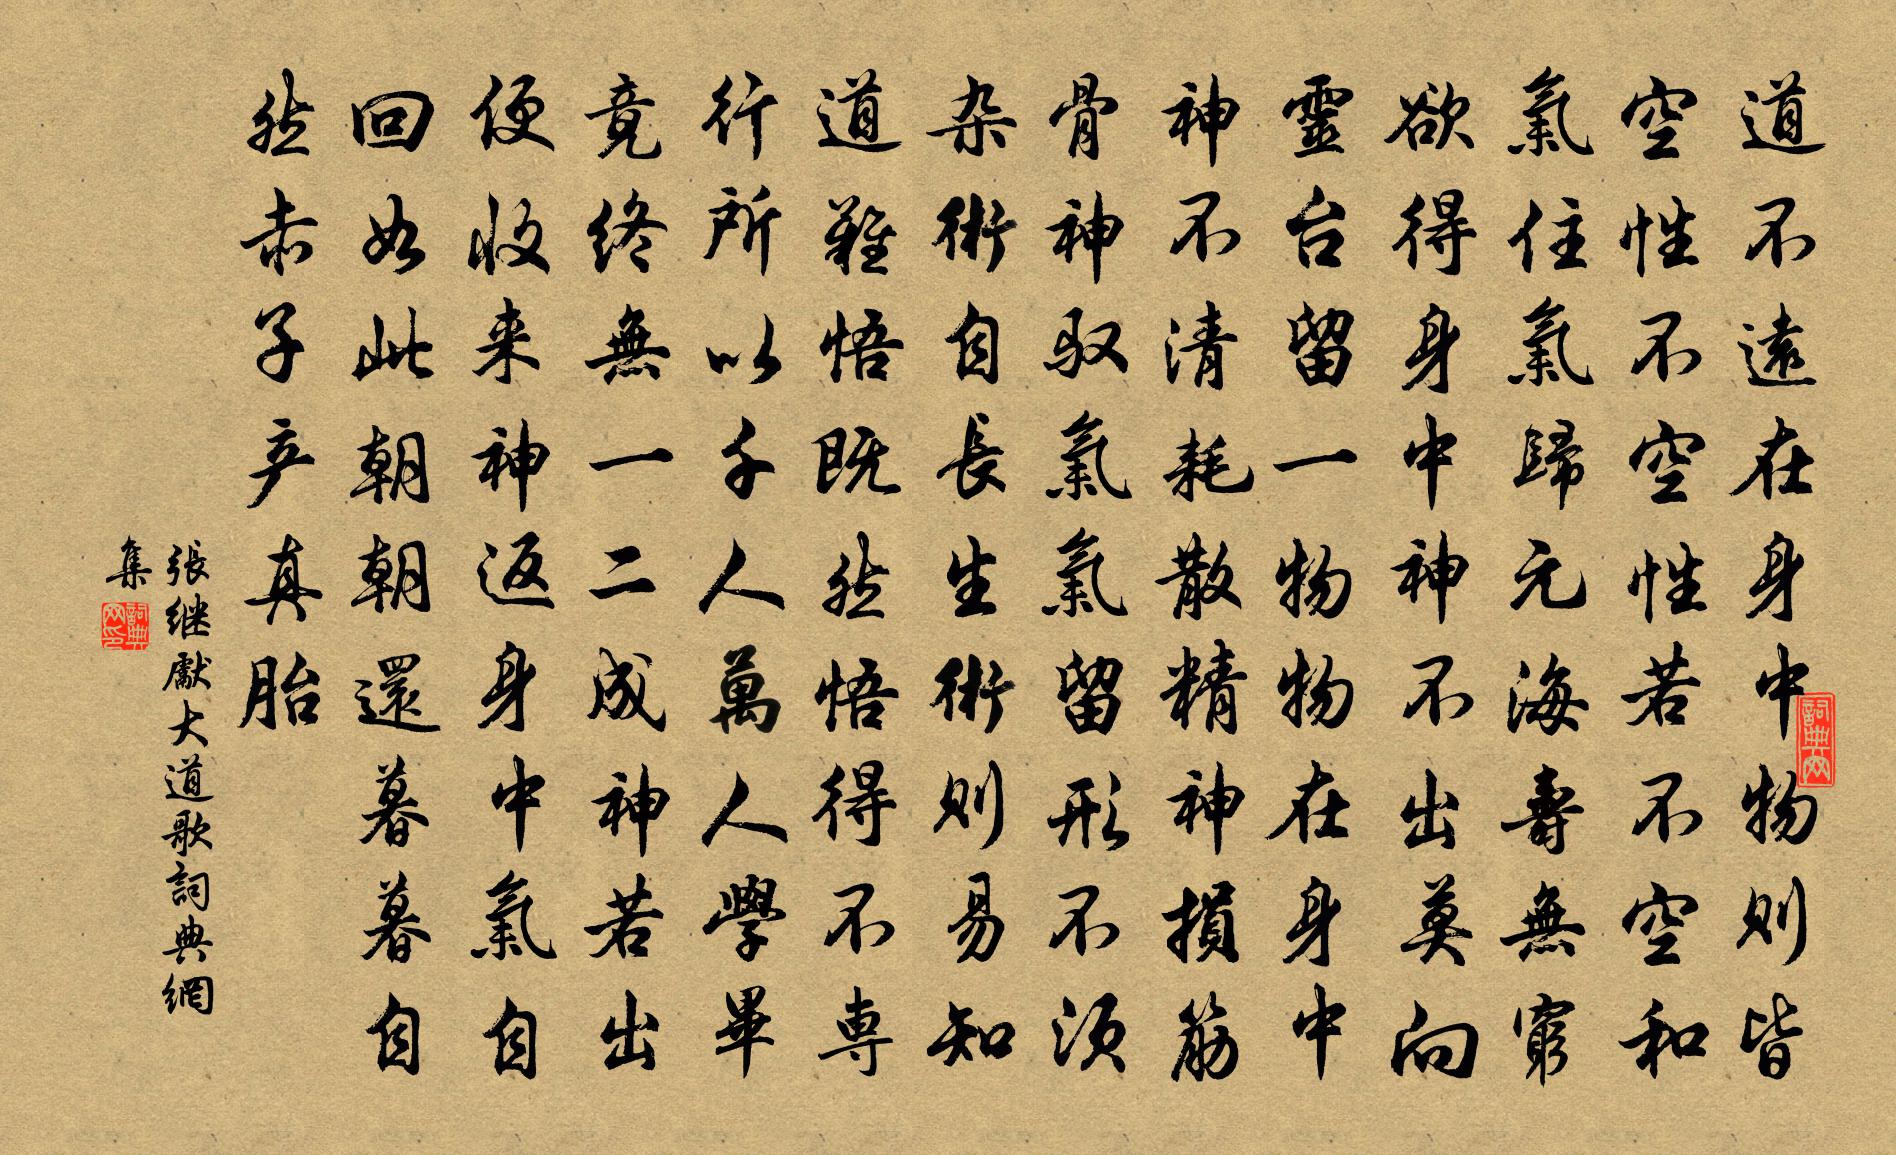 道不遠在身中物則皆
空性不空性若不空和
氣住氣歸元海壽無窮
欲得身中神不出莫向
靈台留一物物在身中
神不清耗散精神損筋
骨神驭氣氣留形不須
杂術自長生術則易知
道難悟既然悟得不専
行所以千人萬人學畢
竟終無一二成神若出
便收来神返身中氣自
回如此朝朝還暮暮自
然赤子产真胎
張继獻大道歌詞典網
集
詞典网
詞典网印